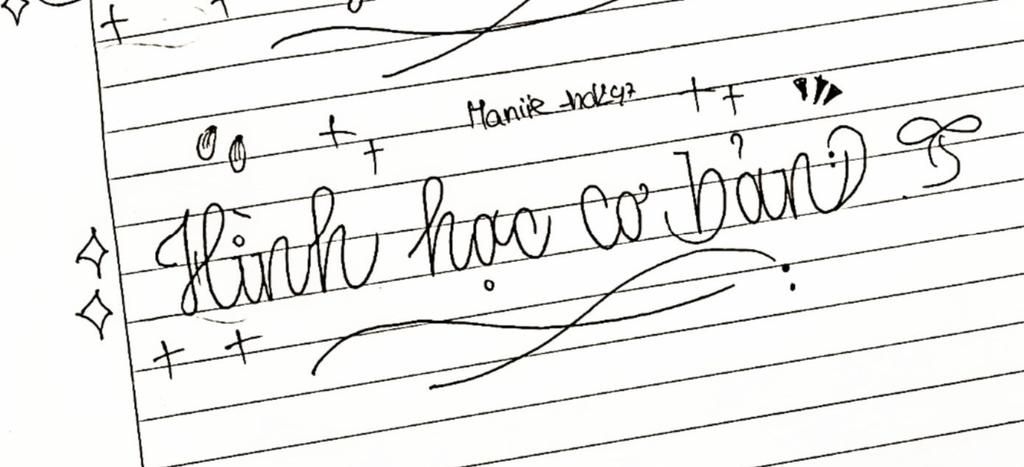 Hình học cơ bản